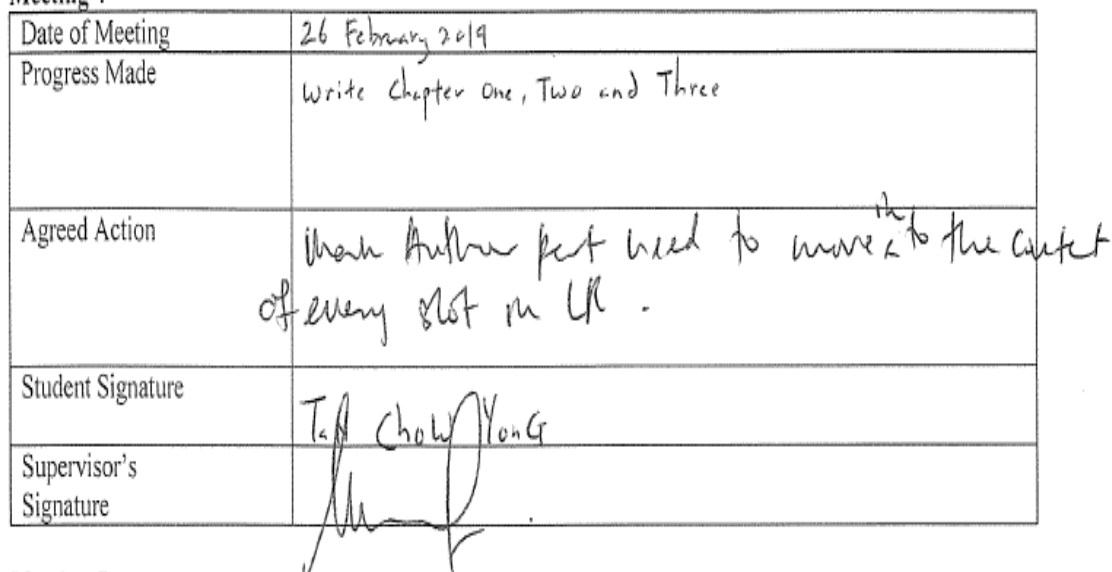 Date of Meeting
26 February 2019
Progress Made
Write Chapter One, Two and Three
Agreed Action
Author part need to move into the
of every slot in LR.
Student Signature
Tan Chow Yong
Supervisor's
Signature